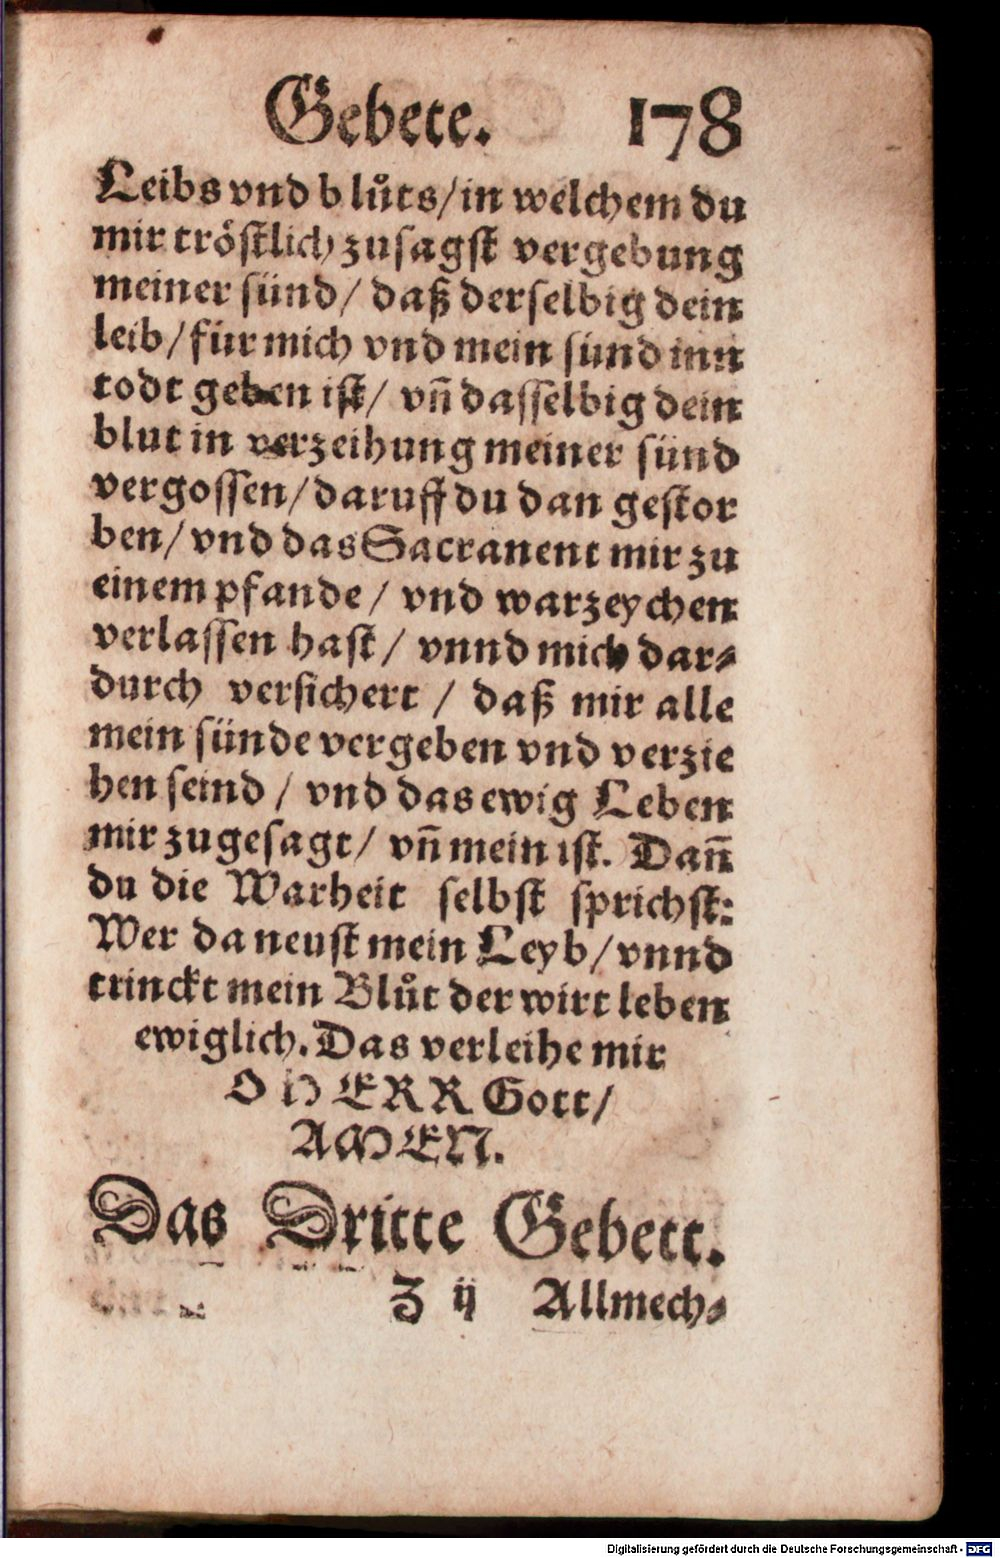 Gebete. 178
Leibs vnd blůts/in welchem du
mir tröstlich zusagst vergebung
meiner sünd/ daß derselbig dein
leib/für mich vnd mein sünd inn
todt geben ist/ vn̄ dasselbig dein
blut in verzeihung meiner sünd
vergossen/daruff du dan gestor
ben/ vnd das Sacranent mir zu
einem pfande/ vnd warzeychen
verlassen hast/ vnnd mich dar⸗
durch versichert / daß mir alle
mein sünde vergeben vnd verzie
hen seind / vnd das ewig Leben
mir zugesagt/ vn̄ mein ist. Dan̄
du die Warheit selbst sprichst:
Wer da neust mein Leyb/vnnd
trinckt mein Blůt der wirt leben
ewiglich. Das verleihe mir
O HERR Gott/
AMEN.
Das Dritte Gebett.
Z ij Allmech⸗
Digitalisierung gefördert durch die Deutsche Forschungsgemeinschaft - DFG